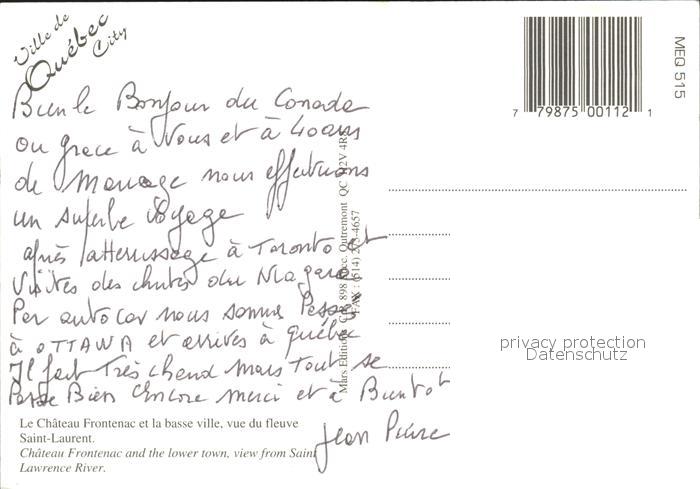 Ville de
Québec
City
Bien le Bonjour du Canada
ou grace à vous et à 40 ans
de Mariage nous effectuons
un superbe voyage
après l'atterrissage à Toronto et
visites des chutes du Niagara
Par autocar nous sommes Passés
à OTTAWA et arrivés à québec
Il fait Très chaud mais Tout se
Passe Bien Encore merci et à Bientot
Jean Pierre
Le Château Frontenac et la basse ville, vue du fleuve
Saint-Laurent.
Château Frontenac and the lower town, view from Saint
Lawrence River.
Mars Editions, C.P. 898 Succ. Outremont QC H2V 4R
FAX : (514) 4657
7 79875 00112 1
MEQ 515
privacy protection
Datenschutz